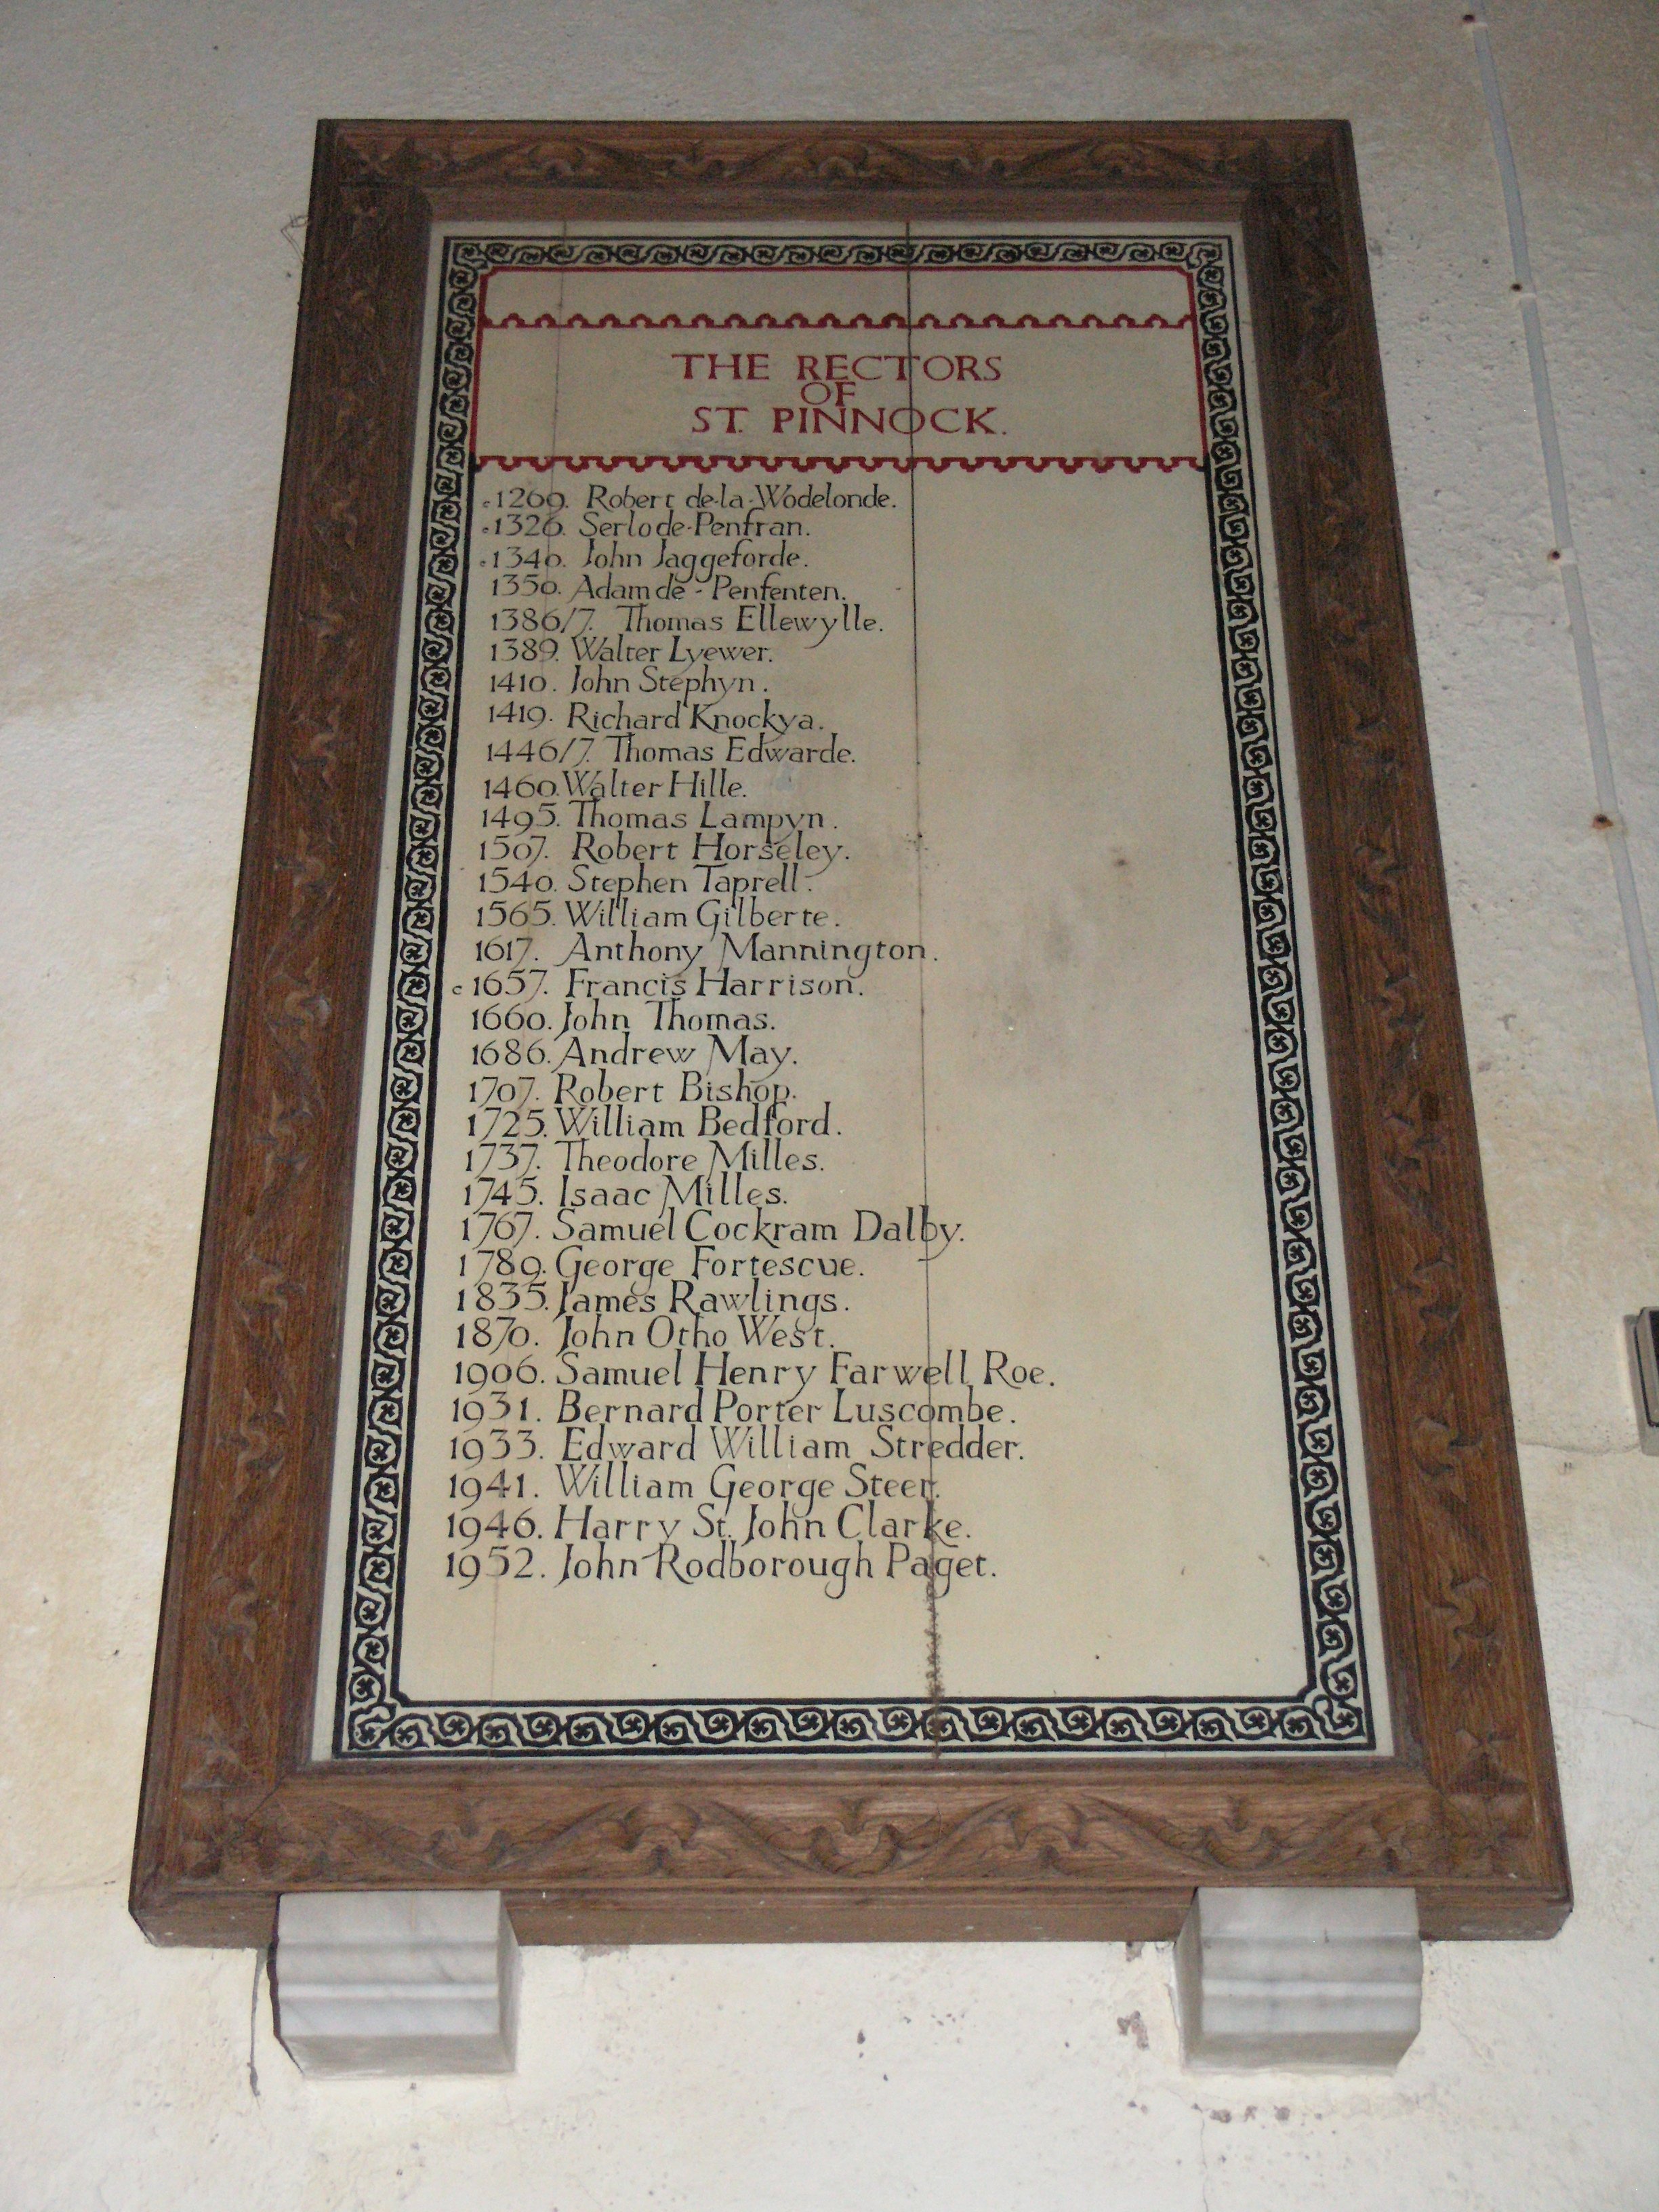 THE RECTORS
OF
ST. PINNOCK.
c 1269. Robert de-la-Wodelonde.
c 1326. Serlo de-Penfran.
c 1340. John Jaggeforde.
1350. Adam de - Penfenten.
1386/7. Thomas Ellewylle.
1389. Walter Lyewer.
1410. John Stephyn.
1419. Richard Knockya.
1446/7. Thomas Edwarde.
1460. Walter Hille.
1495. Thomas Lampyn.
1507. Robert Horseley.
1540. Stephen Taprell.
1565. William Gilberte.
1617. Anthony Mannington.
c 1657. Francis Harrison.
1660. John Thomas.
1686. Andrew May.
1707. Robert Bishop.
1725. William Bedford.
1737. Theodore Milles.
1745. Isaac Milles.
1767. Samuel Cockram Dalby.
1789. George Fortescue.
1835. James Rawlings.
1870. John Otho West.
1906. Samuel Henry Farwell Roe.
1931. Bernard Porter Luscombe.
1933. Edward William Stredder.
1941. William George Steer.
1946. Harry St. John Clarke.
1952. John Rodborough Paget.